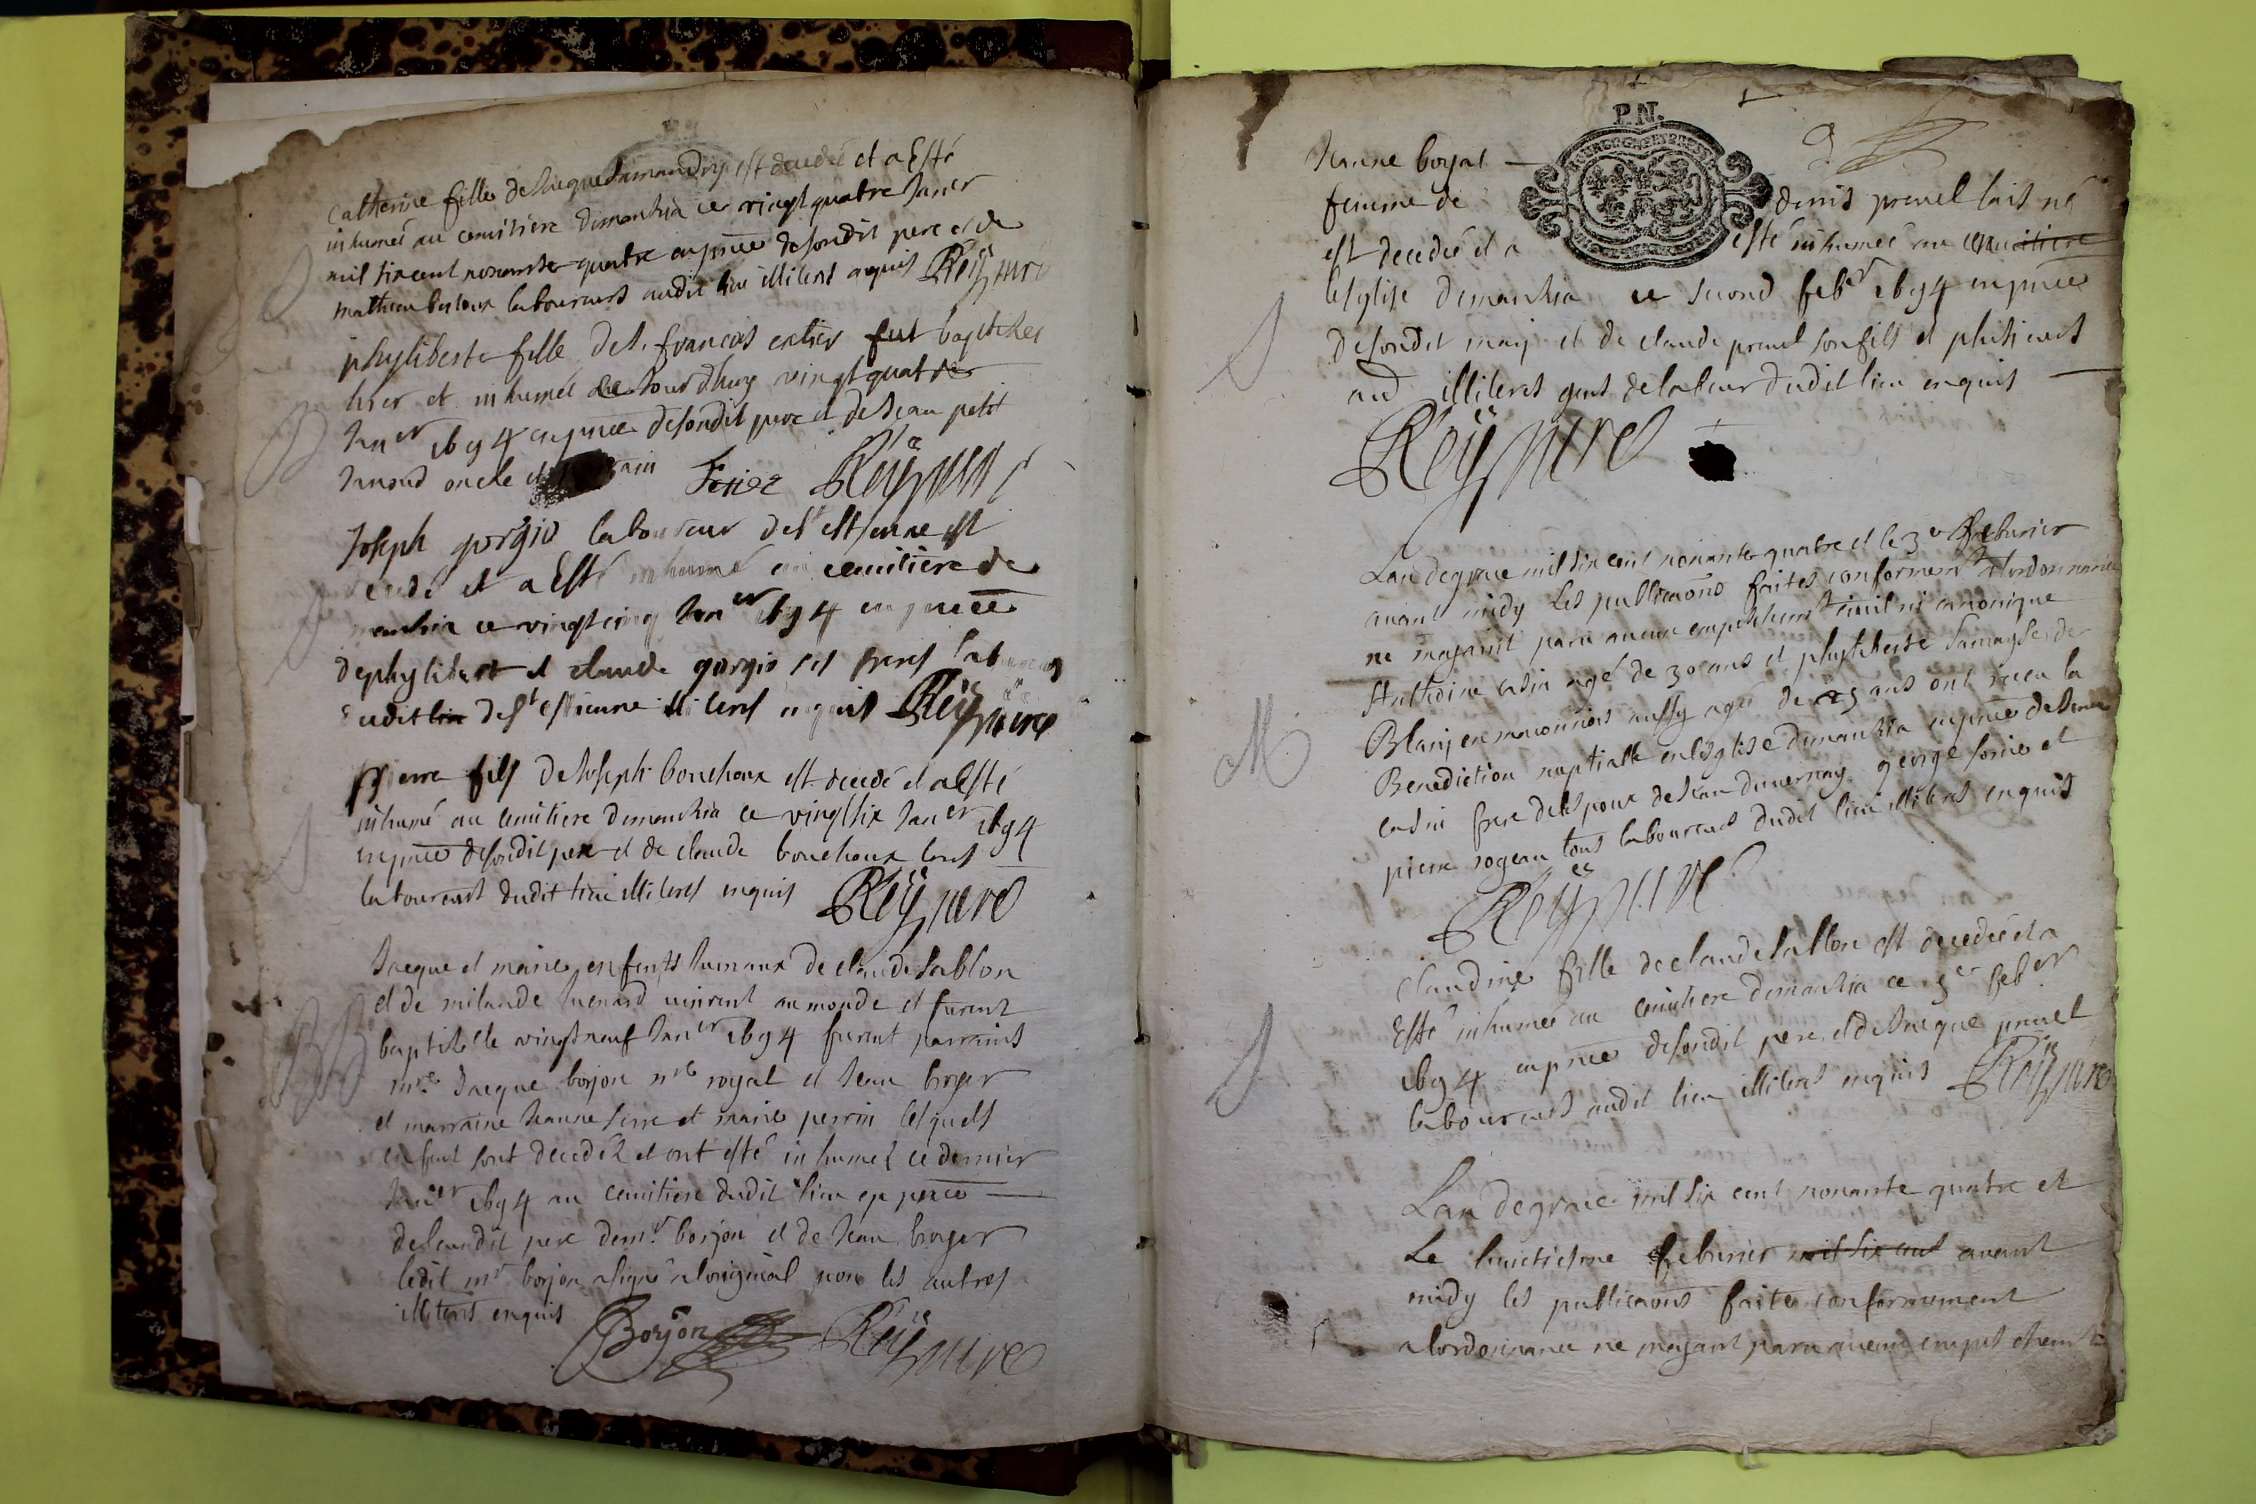 Catherine fille de Jacque Damandry est decedée et a Esté
inhumée au cemitière dimanhia ce vingt quatre Janer
mil six cent nonante quatre en pnce de sondit pere et de
mathieu laboureurs audit lieu illiteres enquis Reÿ pure
phyliberte fille de S. francois fut baptisée
hier et inhumée ce jourdhuy vingt quatre
Janer 1694 en pnce de sondit pere et de Jean petit
Janond oncle et Reÿ
Joseph gorgio laboureur de St estienne est
decedé et a Esté inhumé au cemitière de
manhia ce vingt cinq Janer 1694 en pnce
de phylibert et claude gorgio ses freres
dudit lieu de St estienne illiteres enquis Reÿ pure
Pierre fils de Joseph bouchoux est decedé et a Esté
inhumé au cemitiere dimanhia ce vingt six Janer 1694
en pnce de sondit pere et de claude bouchoux tous
laboureurs dudit lieu illiteres enquis Reÿ pure
Jacque et marie enfents Jumaux de claude sablon
et de milande Juenard vinrent au monde et furent
baptisé le vingt neuf Janer 1694 furent parrains
mre Jacque borjon nre royal et Jean broyer
et marraine Jeanne serre et marie perrin lesquels
enfent sont decedéz et ont esté inhumez ce dernier
Janer 1694 au cemitiere dudit lieu en pnce
de leurdit pere de mr. borjon et de Jean broyer
ledit mr borjon a signé a loriginal non les autres
illiteres enquis Borjon Reÿ pure
P.N.
Jeanne boyat
femme de denis prevel
est decedée et a esté inhumée au cemitiere
leglise dimanhia ce second feber 1694 en pnce
de sondit mary et de claude prevel son fils et plusieurs
aud illiteres gens de labeur dudit lieu enquis
Reÿ pure
Lan de grace mil six cent nonante quatre et le 3e febvrier
avant midy les publicaons faites conformemt a lordonnance
ne mayant paru aucun empechemt civil ni canonique
Anthoine cadin agé de 30 ans et phyliberte de
aussy agée de ans ont receu la
Benediction nuptialle en leglise dimanhia en pnce de
cadin frere de lespoux de Jean dunernay george et
pierre rogeau tous laboureurs dudit lieu illiteres enquis
Reÿ pure
Claudine fille de claude sablon est decedée et a
Esté inhumée au cemitiere dimanhia ce 5e feber
1694 en pnce de sondit pere et de Jacque prevel
laboureurs audit lieu illiteres enquis Reÿ pure
Lan de grace mil six cent nonante quatre et
Le huictiesme febvrier mil six cent avant
midy les publicaons faite conformement
a lordonnance ne mayant paru aucun empeschemt